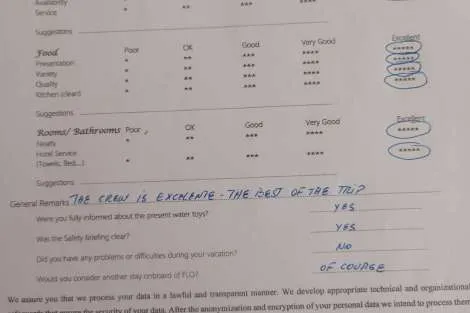 Availability
Service * ** *** ****
Suggestions
Food Poor OK Good Very Good Excellent
Presentation * ** *** **** *****
Variety * ** *** **** *****
Quality * ** *** **** *****
Kitchen (clean) * ** *** **** *****
Suggestions
Rooms/ Bathrooms Poor OK Good Very Good Excellent
Neatly * ** *** **** *****
Hotel Service
(Towels, Bed,...) * ** *** **** *****
Suggestions
General Remarks THE CREW IS EXCELENTE - THE BEST OF THE TRIP
Were you fully informed about the present water toys? YES
Was the Safety Briefing clear? YES
Did you have any problems or difficulties during your vacation? NO
Would you consider another stay onboard of FLO? OF COURSE
We assure you that we process your data in a lawful and transparent manner. We develop appropriate technical and organizational
security of your data. After the anonymization and encryption of your personal data we intend to process them